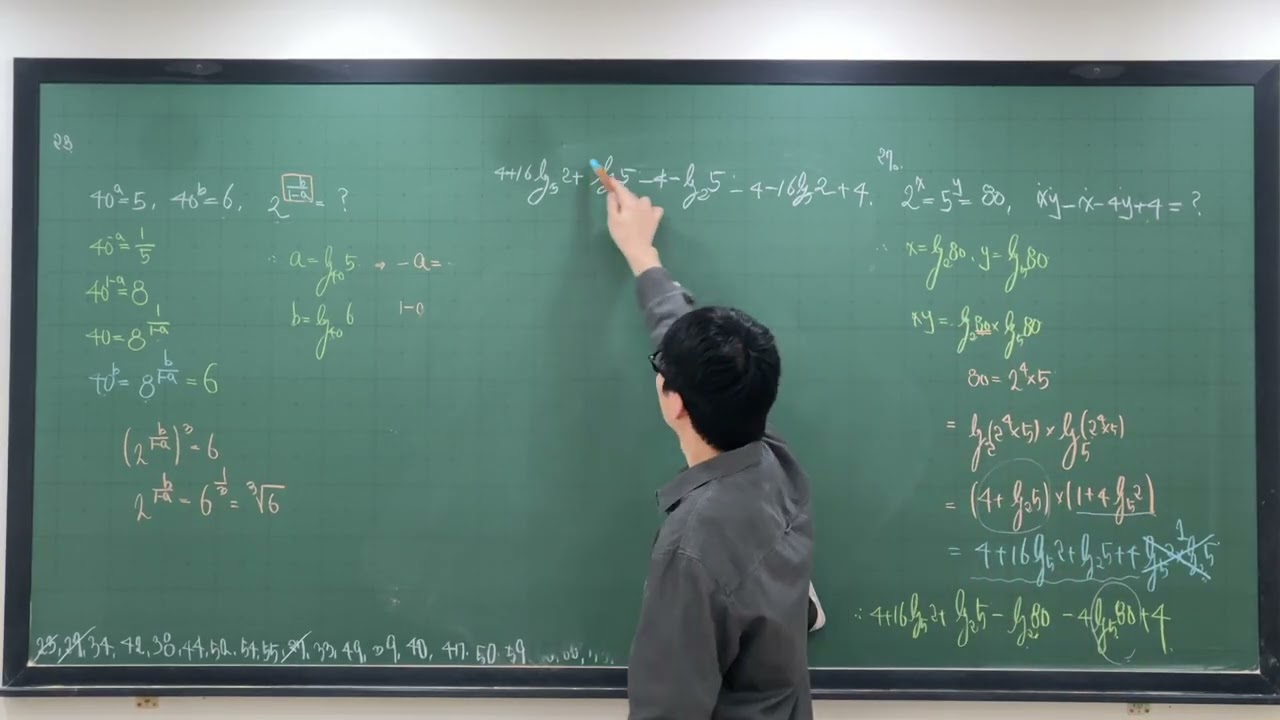 23
40^a=5, 40^b=6, 2^{b/(1-a)}= ?
40^{-a}=1/5
40^{1-a}=8
40=8^{1/(1-a)}
40^b=8^{b/(1-a)}=6
(2^{b/(1-a)})^3=6
2^{b/(1-a)}=6^{1/3}=∛6
∴ a=log_{40}5 → -a=
b=log_{40}6 1-a
4+16log_5 2+log_2 5-4-log_2 5-4-16log_5 2+4
29.
2^x=5^y=80, xy-x-4y+4=?
∴ x=log_2 80, y=log_5 80
xy=log_2 80×log_5 80
80=2^4×5
=log_2(2^4×5)×log_5(2^4×5)
=(4+log_2 5)×(1+4log_5 2)
=4+16log_5 2+log_2 5+4 log_5 2×log_2 5 1
∴ 4+16log_5 2+log_2 5-log_2 80-4log_5 80+4
34, 42, 30, 44, 52, 54, 55, 33, 49, 40, 47, 50, 59